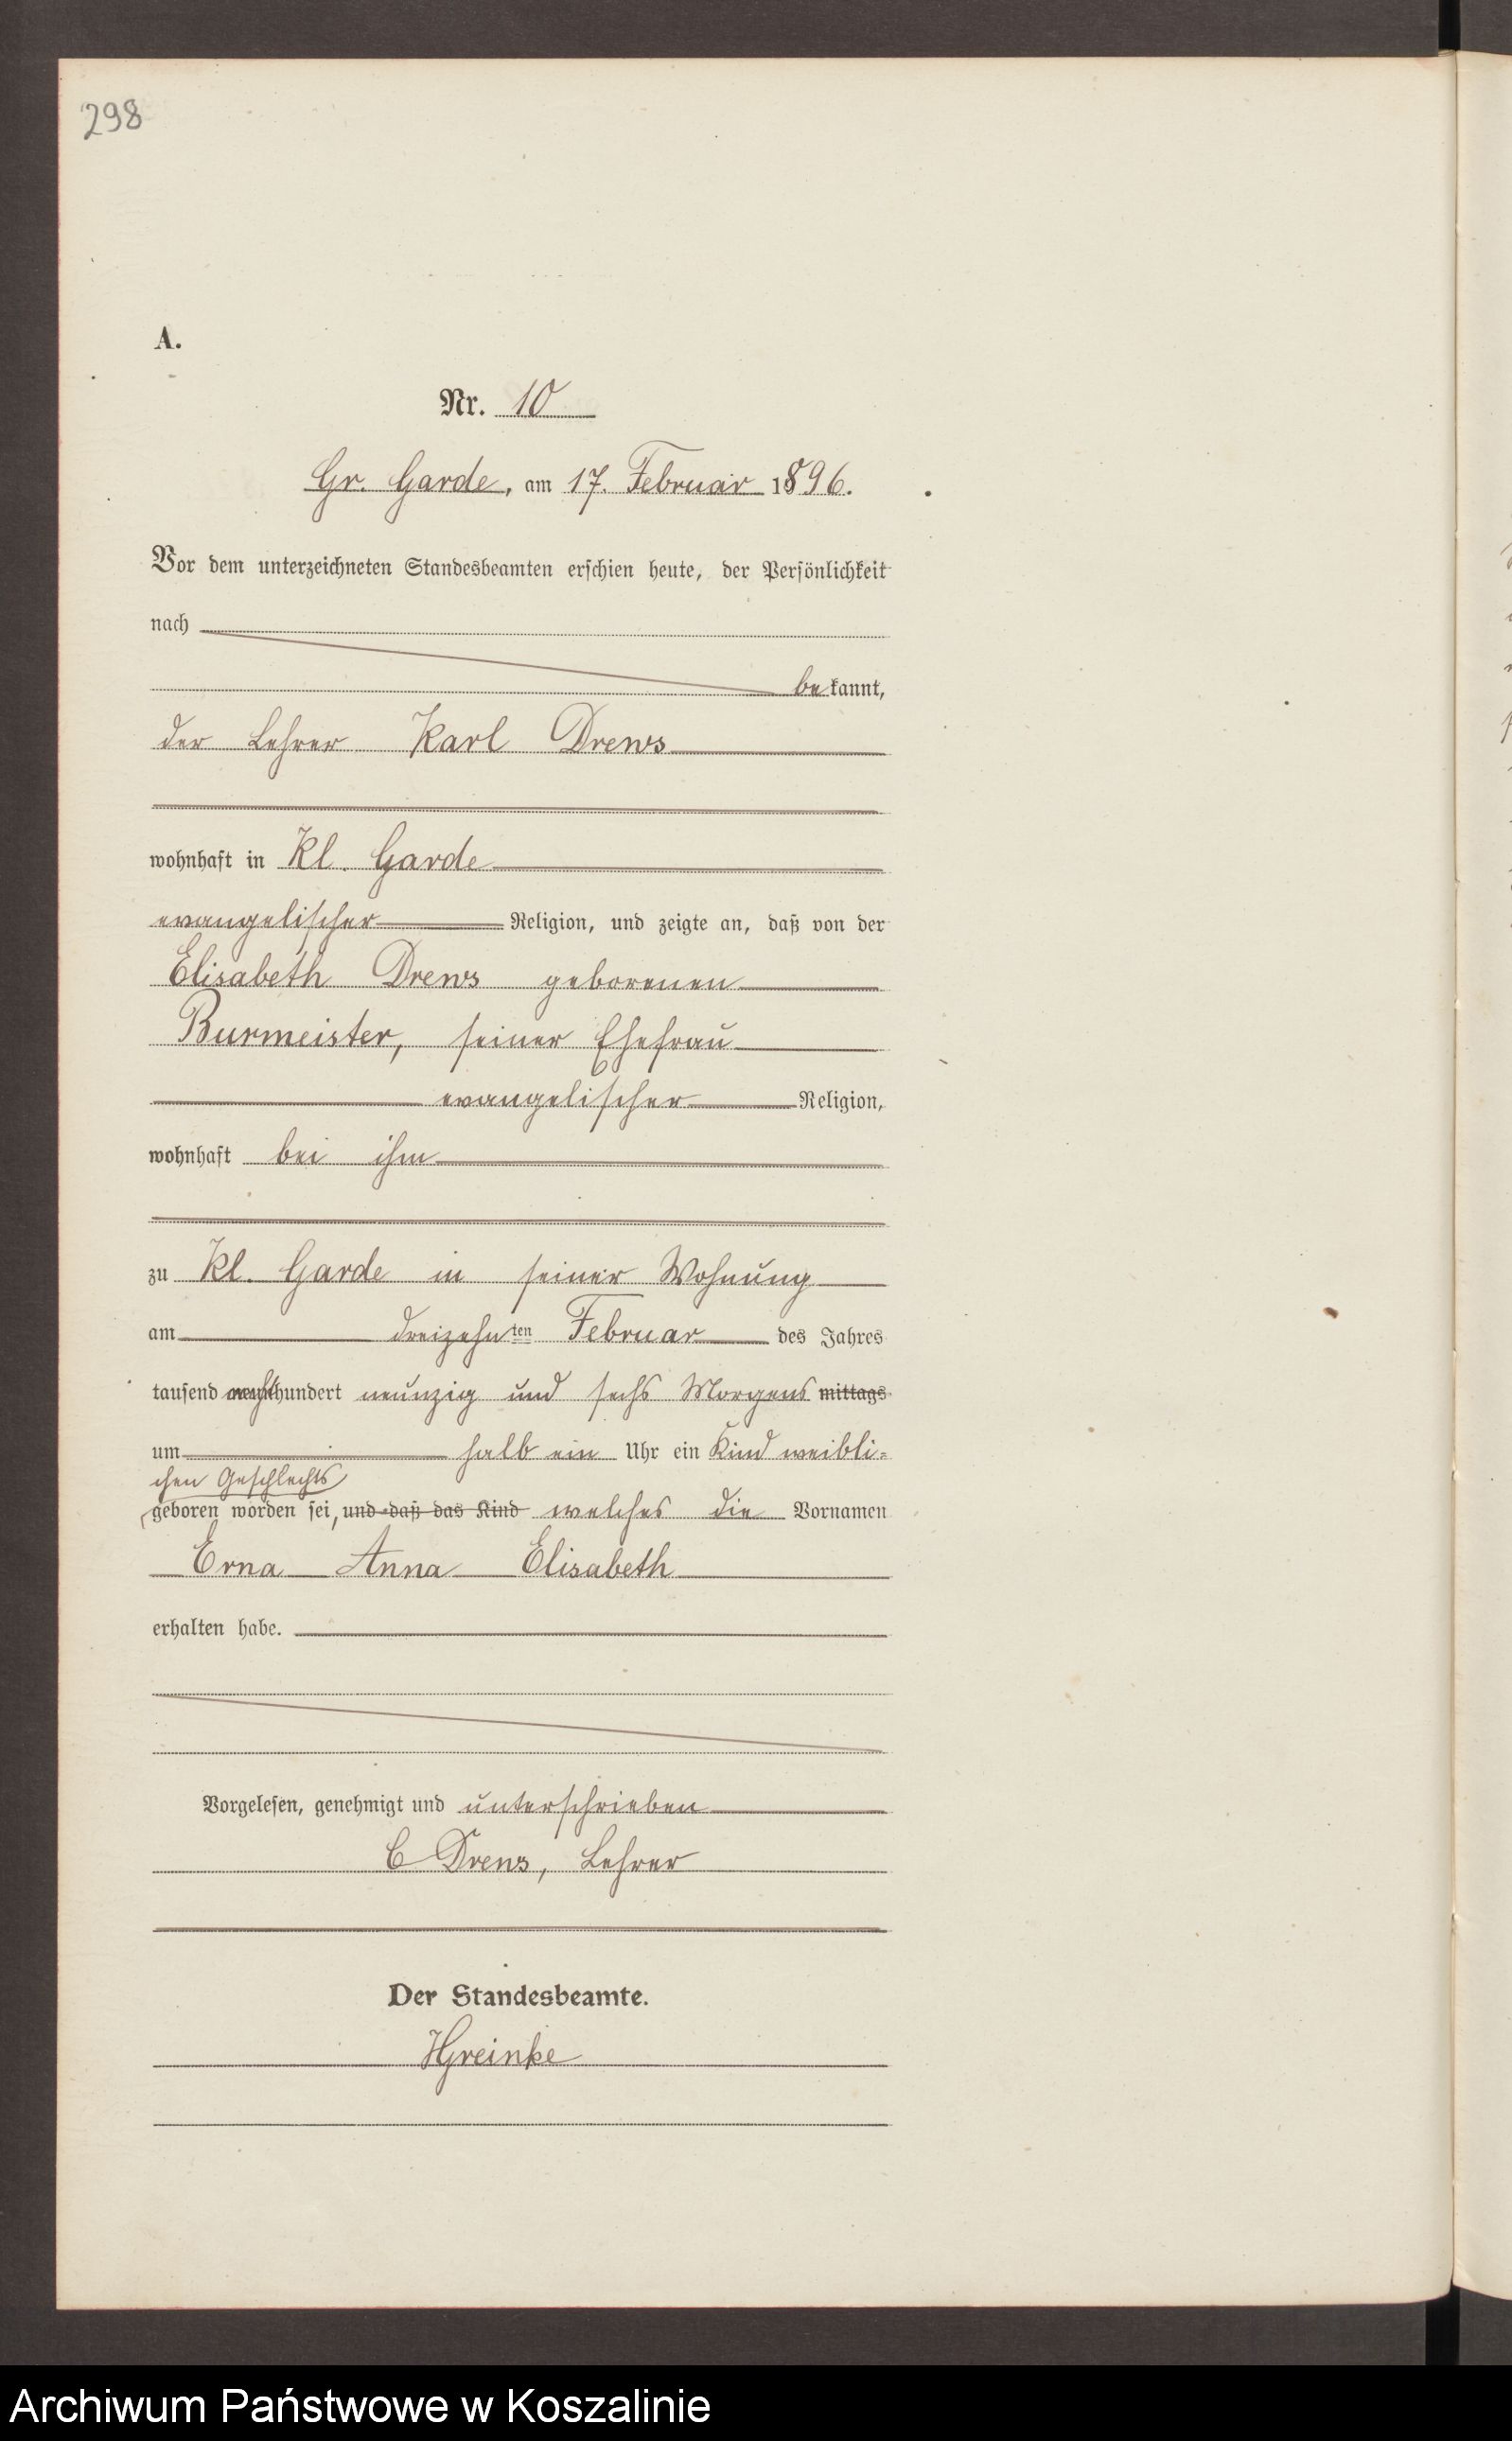 298
A.
Nr. 10
Gr. Garde, am 17. Februar 1896.
Vor dem unterzeichneten Standesbeamten erschien heute, der Persönlichkeit
nach
bekannt,
der Lehrer Karl Drews
wohnhaft in Kl. Garde
evangelischer Religion, und zeigte an, daß von der
Elisabeth Drews geborenen
Burmeister, seiner Ehefrau
evangelischer Religion,
wohnhaft bei ihm
zu Kl. Garde in seiner Wohnung
am dreizehnten Februar des Jahres
tausend achthundert neunzig und sechs Morgens mittags
um halb ein Uhr ein Kind weibli=
chen Geschlechts
geboren worden sei, und daß das Kind welches die Vornamen
Erna Anna Elisabeth
erhalten habe.
Vorgelesen, genehmigt und unterschrieben
C Drews, Lehrer
Der Standesbeamte.
HGreinke
Archiwum Państwowe w Koszalinie